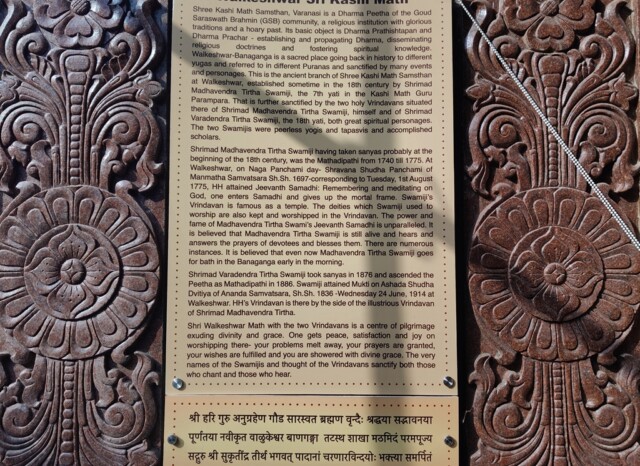 Walkeshwar Sri Kashi Math
Shree Kashi Math Samsthan, Varanasi is a Dharma Peetha of the Goud
Saraswath Brahmin (GSB) community, a religious institution with glorious
traditions and a hoary past. Its basic object is Dharma Pratishtapan and
Dharma Prachar - establishing and propagating Dharma, disseminating
religious doctrines and fostering spiritual knowledge.
Walkeshwar-Banaganga is a sacred place going back in history to different
yugas and referred to in different Puranas and sanctified by many events
and personages. This is the ancient branch of Shree Kashi Math Samsthan
at Walkeshwar, established sometime in the 18th century by Shrimad
Madhavendra Tirtha Swamiji, the 7th yati in the Kashi Math Guru
Parampara. That is further sanctified by the two holy Vrindavans situated
there of Shrimad Madhavendra Tirtha Swamiji, himself and of Shrimad
Varadendra Tirtha Swamiji, the 18th yati, both great spiritual personages.
The two Swamijis were peerless yogis and tapasvis and accomplished
scholars.
Shrimad Madhavendra Tirtha Swamiji having taken sanyas probably at the
beginning of the 18th century, was the Mathadipathi from 1740 till 1775. At
Walkeshwar, on Naga Panchami day- Shravana Shudha Panchami of
Manmatha Samvatsara Sh.Sh. 1697-corresponding to Tuesday, 1st August
1775, HH attained Jeevanth Samadhi: Remembering and meditating on
God, one enters Samadhi and gives up the mortal frame. Swamiji's
Vrindavan is famous as a temple. The deities which Swamiji used to
worship are also kept and worshipped in the Vrindavan. The power and
fame of Madhavendra Tirtha Swami's Jeevanth Samadhi is unparalleled. It
is believed that Madhavendra Tirtha Swamiji is still alive and hears and
answers the prayers of devotees and blesses them. There are numerous
instances. It is believed that even now Madhavendra Tirtha Swamiji goes
for bath in the Banaganga early in the morning.
Shrimad Varadendra Tirtha Swamiji took sanyas in 1876 and ascended the
Peetha as Mathadipathi in 1886. Swamiji attained Mukti on Ashada Shudha
Dvitiya of Ananda Samvatsara, Sh.Sh. 1836 -Wednesday 24 June, 1914 at
Walkeshwar. HH's Vrindavan is there by the side of the illustrious Vrindavan
of Shrimad Madhavendra Tirtha.
Shri Walkeshwar Math with the two Vrindavans is a centre of pilgrimage
exuding divinity and grace. One gets peace, satisfaction and joy on
worshipping there- your problems melt away, your prayers are granted,
your wishes are fulfilled and you are showered with divine grace. The very
names of the Swamijis and thought of the Vrindavans sanctify both those
who chant and those who hear.
श्री हरि गुरु अनुग्रहेण गौड सारस्वत ब्रह्मण वृन्दैः श्रद्धया सद्भावनया
पूर्णतया नवीकृत वाळुकेश्वर बाणगङ्गा तटस्थ शाखा मठमिदं परमपूज्य
सद्गुरु श्री सुकृतींद्र तीर्थ भगवत् पादानां चरणारविन्दयोः भक्त्या समर्पितं